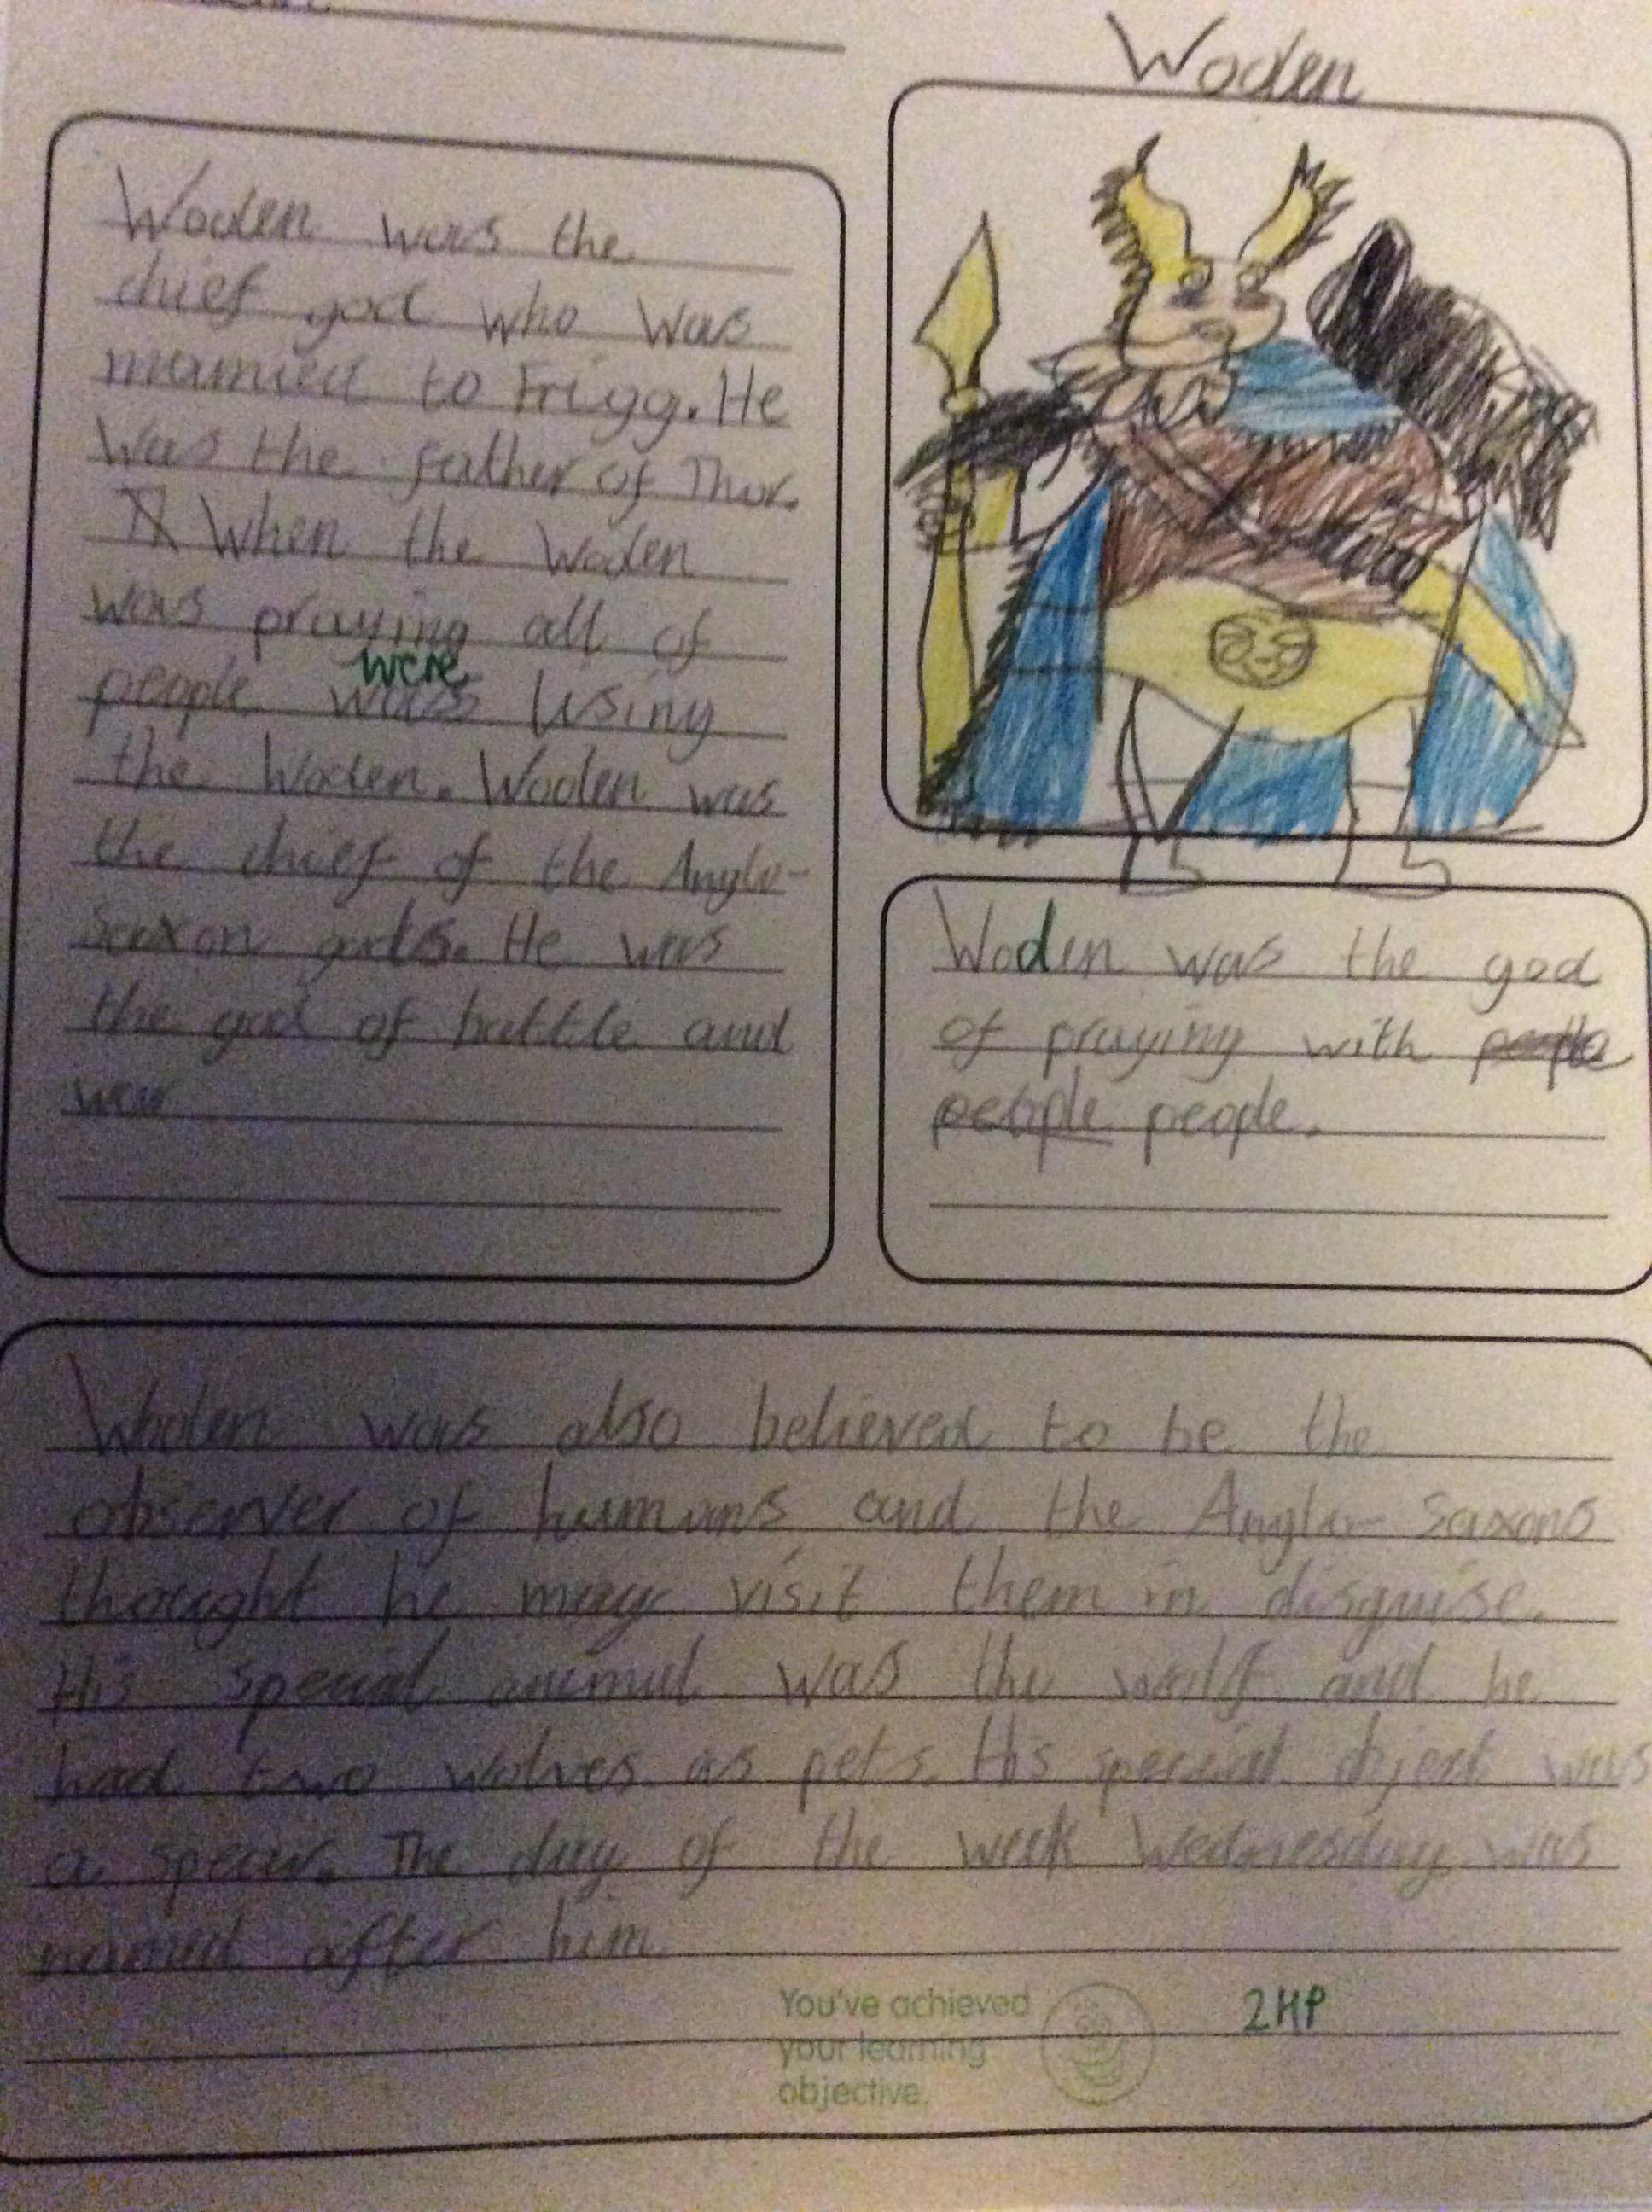 Woden
Woden was the
chief god who was
married to Frigg. He
was the father of Thor.
When the Woden
was praying all of
were
people was using
the Woden. Woden was
the chief of the Anglo-
Saxon gods. He was
the god of battle and
war
Woden was the god
of praying with people
people people.
Wholen was also believed to be the
observer of humans and the Anglo-Saxons
thought he may visit them in disguise.
His special animal was the wolf and he
had two wolves as pets. His special object was
a spear. The day of the week Wednesday was
named after him
You've achieved
your learning
objective.
2HP